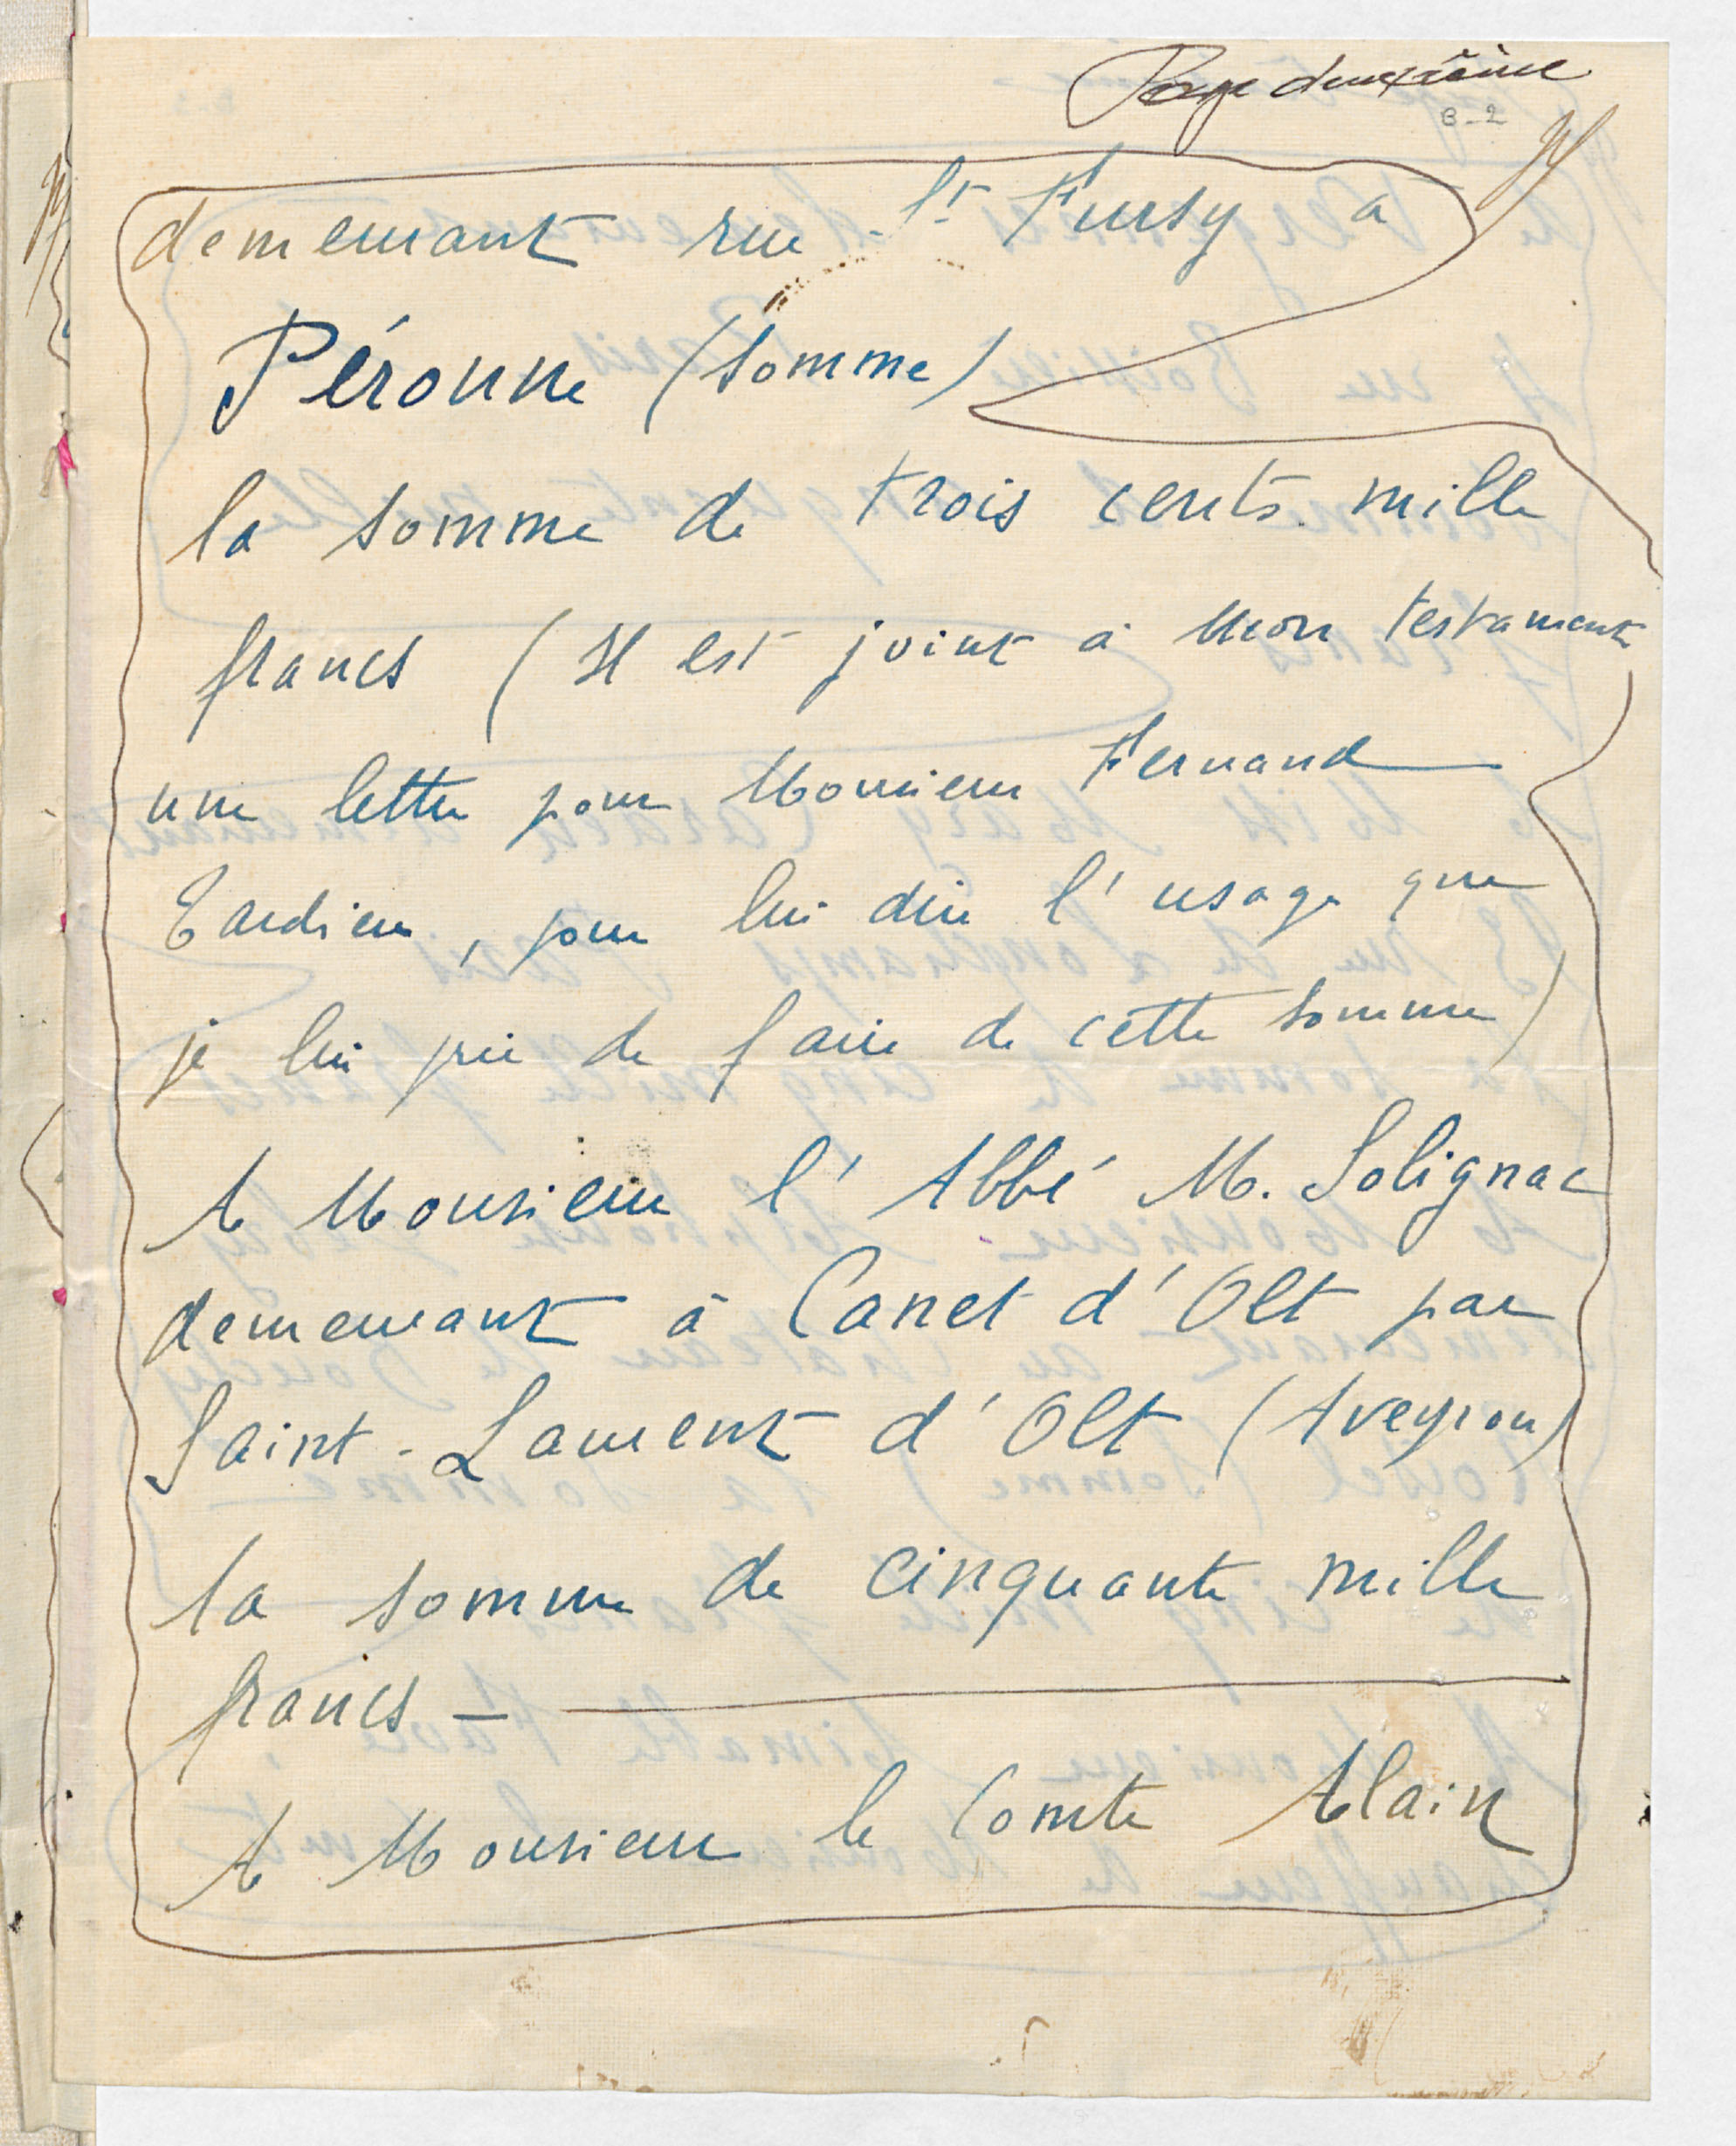 Page deuxième
B-2
demeurant rue St Fursy a
Péronne (Somme)
la somme de trois cents mille
francs (Il est joint à mon testament
une lettre pour Monsieur Fernand
Tardieu, pour lui dire l'usage que
je lui prie de faire de cette somme)
A Monsieur l'Abbé M. Solignac
demeurant à Canet d'Olt par
Saint-Laurent d'Olt (Aveyron)
la somme de cinquante mille
francs —
A Monsieur le Comte Alain